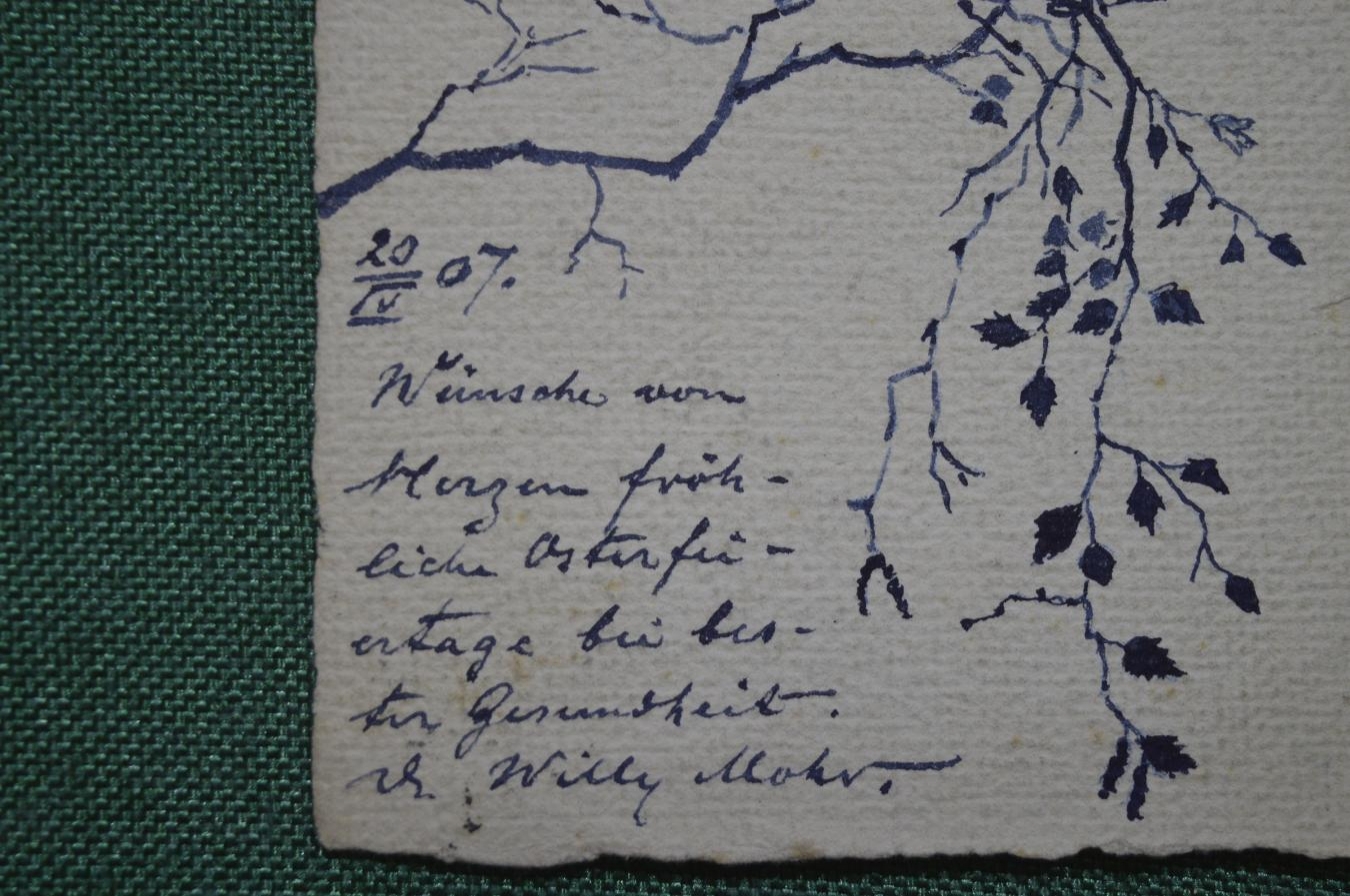 20/IV 07.
Wünsche von
Herzen fröh-
liche Osterfei-
ertage bei bes-
ter Gesundheit.
Willy Mohr.